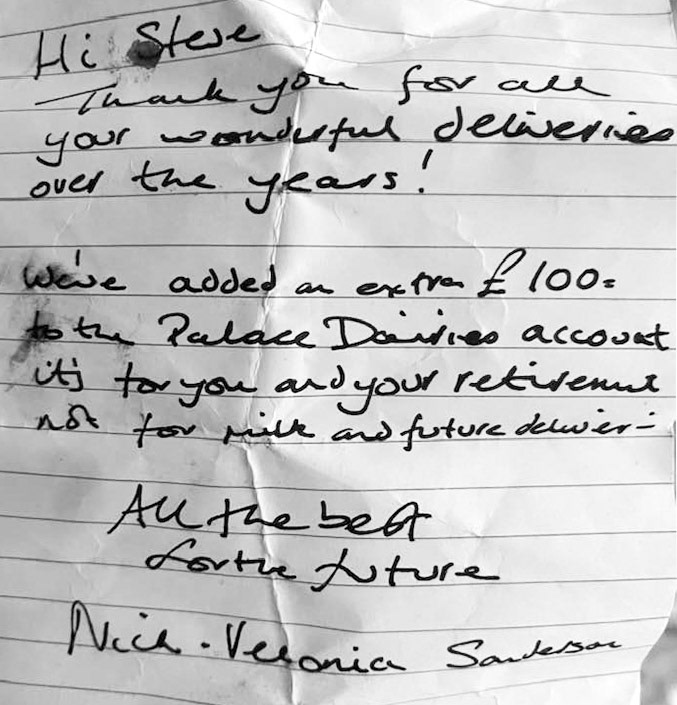 Hi Steve
Thank you for all
your wonderful deliveries
over the years!
We've added an extra £100=
to the Palace Dairies account
it's for you and your retirement
not for milk and future deliver-
All the best
for the future
Nick · Veronica Sanderson